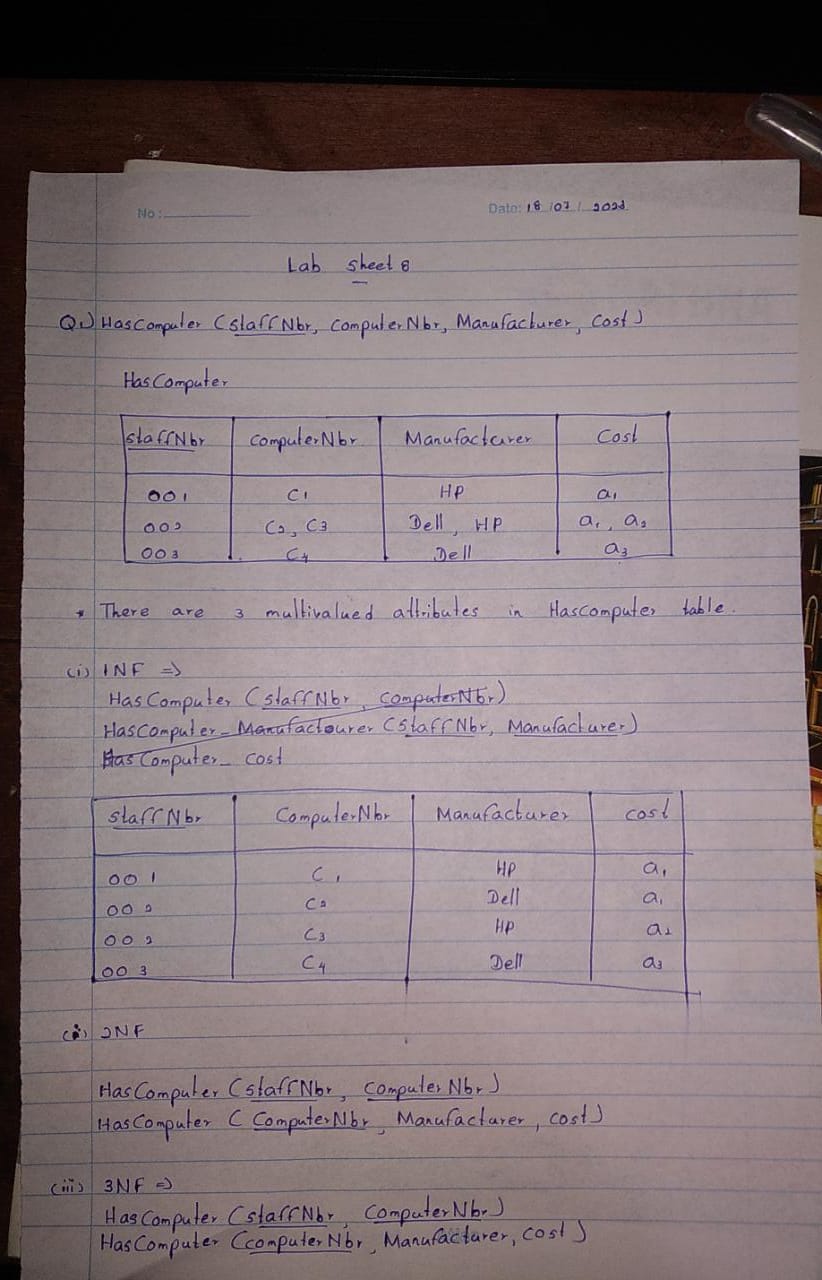 No:
Date: 18/07/2023
Lab Sheet 8
Q.) HasComputer (staffNbr, ComputerNbr, Manufacturer, Cost)
HasComputer
staffNbr ComputerNbr Manufacturer Cost
001 C1 HP a1
002 C2, C3 Dell, HP a1, a2
003 C4 Dell a3
* There are 3 multivalued attributes in Hascomputer table.
(i) 1NF ⇒
HasComputer (staffNbr, ComputerNbr)
HasComputer_Manufactourer (StaffNbr, Manufacturer)
Has Computer_ cost
staffNbr ComputerNbr Manufacturer cost
001 C1 HP a1
002 C2 Dell a1
002 C3 HP a2
003 C4 Dell a3
(ii) 2NF
HasComputer (staffNbr, ComputerNbr)
HasComputer (ComputerNbr, Manufacturer, cost)
(iii) 3NF ⇒
HasComputer (staffNbr, ComputerNbr)
HasComputer (computerNbr, Manufacturer, cost)